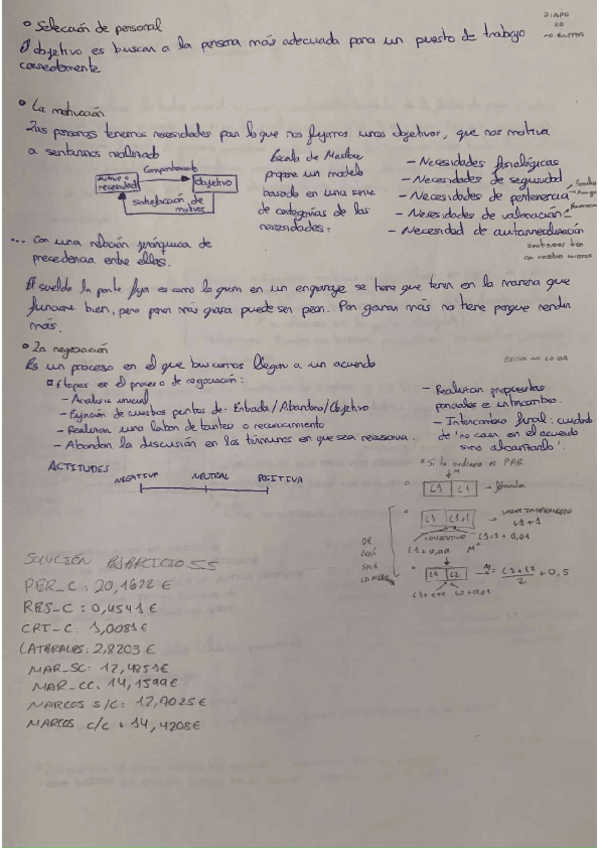 DIAPO
20
NO ENTRA
Selección de personal
El objetivo es buscar a la persona más adecuada para un puesto de trabajo
La motivación
Las personas tenemos necesidades por lo que nos fijamos unos objetivos, que nos motiva
a sentirnos realizado
Comportamiento
Motivo o
necesidad
objetivo
satisfacción de
motivos
Escala de Maslow
propone un modelo
basado en una serie
de categorías de las
necesidades:
- Necesidades fisiológicas
- Necesidades de seguridad
- Necesidades de pertenencia
- Necesidades de valoración
- Necesidad de autorrealización
sentirnos bien
... con una relación jerárquica de
precedencia entre ellas.
El sueldo la parte fija es como la grasa en un engranaje se tiene que tener en la manera que
funcione bien, pero poner más grasa puede ser peor. Por ganar más no tiene porque rendir
más.
La negociación
Es un proceso en el que buscamos llegar a un acuerdo
Etapas en el proceso de negociación:
- Analisis inicial
- Fijación de nuestros puntos de: Entrada/Abandono/Objetivo
- Realizar una labor de tanteo o reconocimiento
- Abordar la discusión en los términos en que sea necesaria.
- Realizar propuestas
parciales e intercambio.
- Intercambio final: cuidado
de 'no caer en el acuerdo
sino alcanzarlo'.
ACTITUDES
NEGATIVA NEUTRAL POSITIVA
* Si la mediana es PAR
M
L1 L1 → fórmula
L1 L1+1 →
L1+1
L1+0,01 M
L1 L2 M = (L1+L2)/2 + 0,5
SOLUCIÓN EJERCICIO 55
PER_C: 20,1622 €
RES_C: 0,4541 €
CRI_C: 1,0081 €
LATERALES: 2,8203 €
MAR_SC: 12,4251 €
MAR_CC: 14,1599 €
MARCOS S/C: 12,7025 €
MARCOS C/C: 14,4208 €